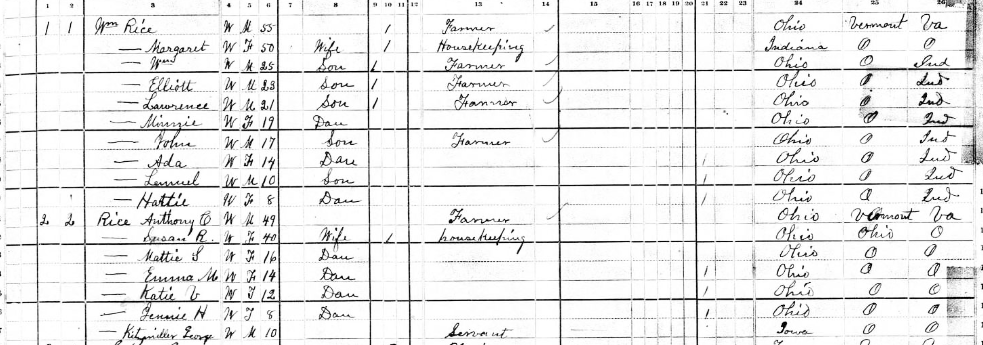 1 2 3 4 5 6 7 8 9 10 11 12 13 14 15 16 17 18 19 20 21 22 23 24 25 26
1 1 Wm Rice W M 55 / Farmer ✓ Ohio Vermont Va
— Margaret W F 50 Wife / Housekeeping Indiana O O
— Wm W M 25 Son / Farmer ✓ Ohio O Ind
— Elliott W M 23 Son / Farmer ✓ Ohio O Ind
— Lawrence W M 21 Son / Farmer ✓ Ohio O Ind
— Minnie W F 19 Dau Ohio O Ind
— John W M 17 Son Farmer ✓ Ohio O Ind
— Ada W F 14 Dau / Ohio O Ind
— Lemuel W M 10 Son / Ohio O Ind
— Hattie W F 8 Dau / Ohio O Ind
2 2 Rice Anthony C W M 49 Farmer ✓ Ohio Vermont Va
— Susan R. W F 40 Wife / housekeeping Ohio Ohio O
— Mattie S W F 16 Dau Ohio O O
— Emma M W F 14 Dau / Ohio O O
— Katie V W F 12 Dau / Ohio O O
— Jennie H W F 8 Dau / Ohio O O
George W M 10 Servant Iowa O O